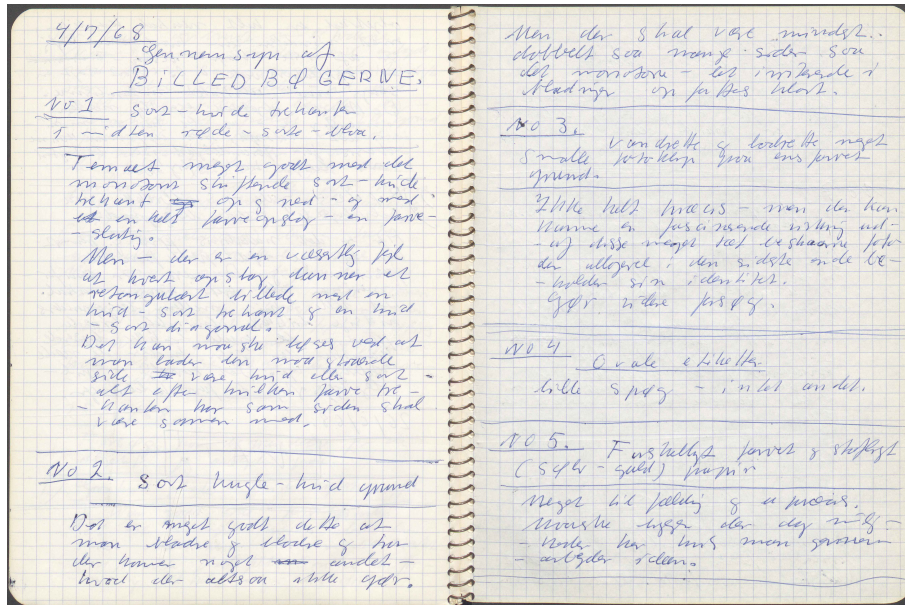 4/7/68
Gennemsyn af
BILLEDBØGERNE.
No 1 Sort-hvide trekanter
i midten røde-sorte-blaa.
Temaet meget godt med det
monotont skiftende sort-hvide
trekant op og ned - og med
en helt farveopslag - en farve-
-slutning.
Men - der er en væsentlig fejl
at hvert opslag danner et
retangulært billede med en
hvid-sort trekant og en hvid
-sort diagonal.
Det kan maaske løses ved at
man lader den modstaaende
side være hvid eller sort -
alt efter hvilken farve tre-
-kanten har som siden skal
være sammen med.
No 2. Sort kugle-hvid grund
Det er meget godt dette at
man bladre og bladre og tror
der kommer noget andet -
hvad der altsaa ikke gør.
Men der skal være mindst
dobbelt saa mange sider saa
det monotone - let irriterende i
bladringen opfattes klart.
No 3.
vandrette og lodrette meget
smalle fotoklip paa ens farvet
grund.
Ikke helt præcis - men der kan
komme en fascinerende virkning ud-
-af disse meget tæt beskaarne foto
der alligevel i den sidste ende be-
-holder sin identitet.
Gør videre forsøg.
No 4
Ovale etiketter
lille spøg - intet andet.
No 5. Forskelligt farvet og stofligt
(sølv-guld) papir
Meget tilfældig og upræcis.
Maaske ligger der dog mulig-
-heder her hvis man gennem-
-arbejder ideen.